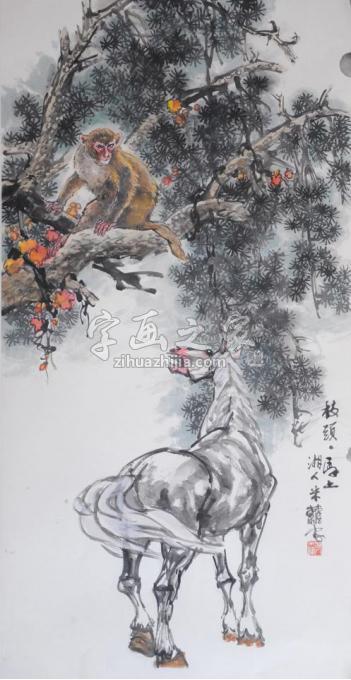 字画之家
zihuazhijia.com
枝頭·馬上
湘人米